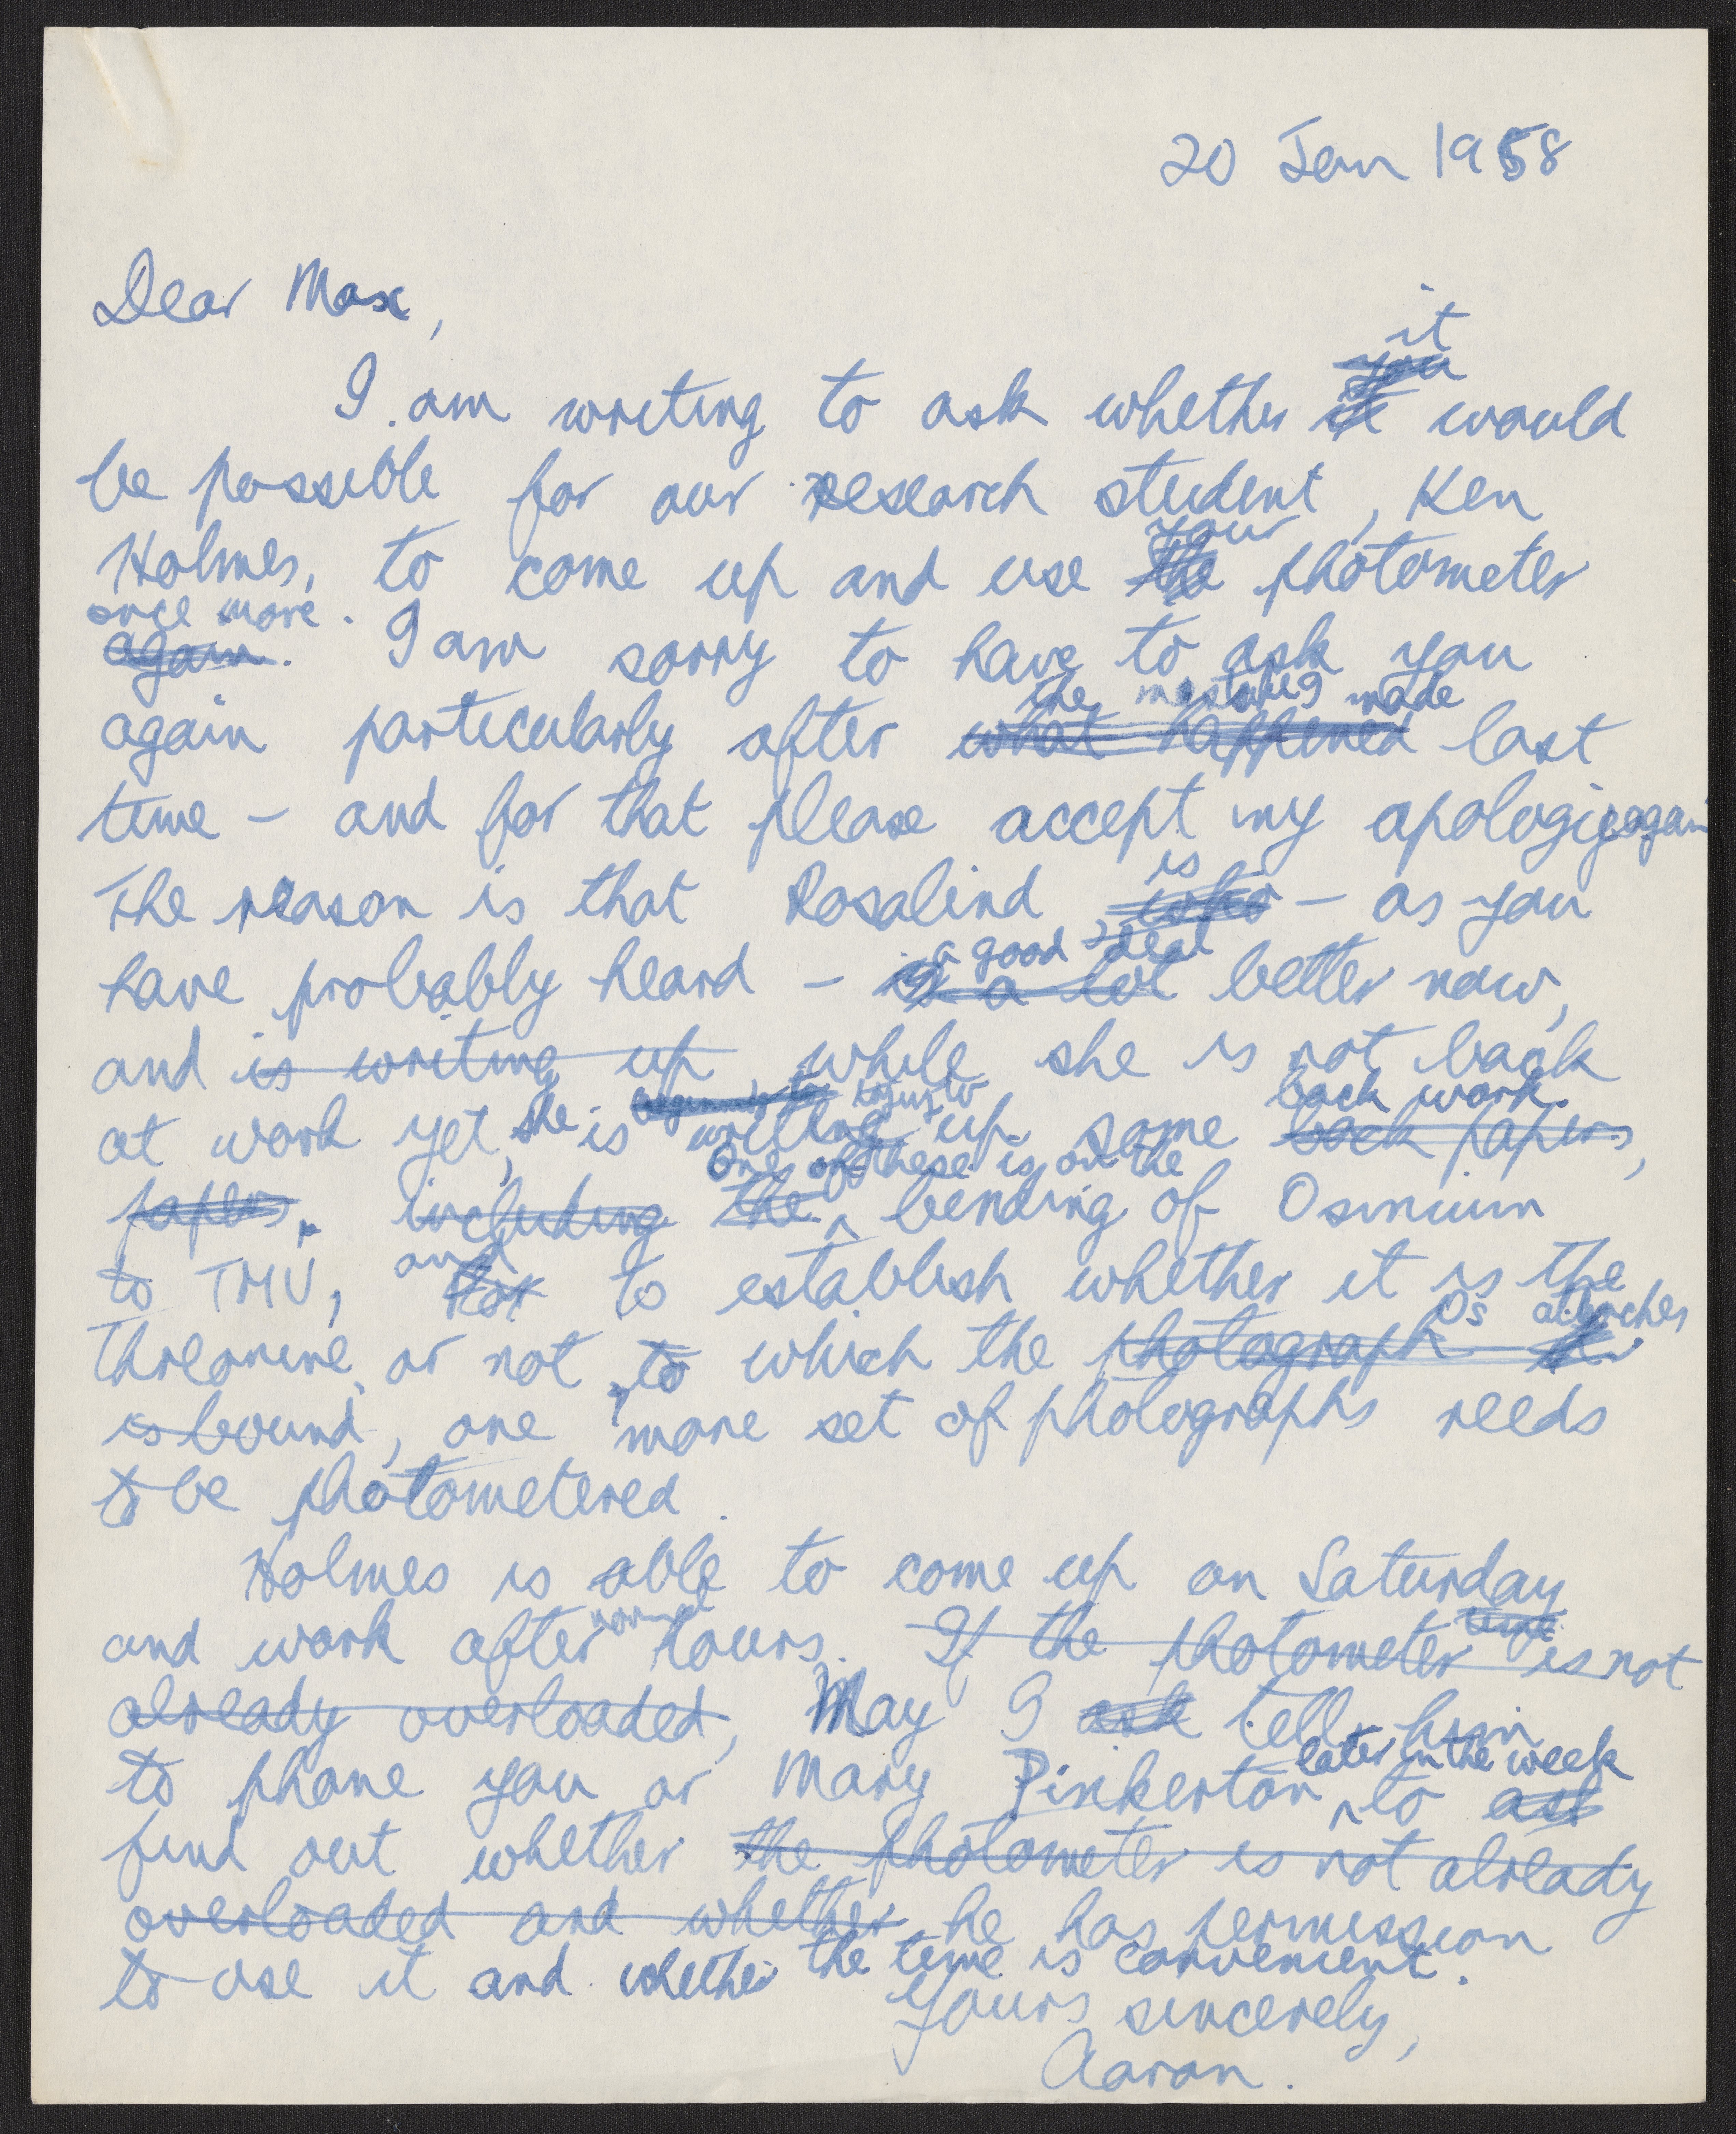 20 Jan 1958
Dear Max,
it
you
I am writing to ask whether it would
be possible for our research student, Ken
your
Holmes, to come up and use the photometer
once more.
again. I am sorry to have to ask you
the mistakes made
again particularly after what happened last
time – and for that please accept my apologies again
is
The reason is that Rosalind, who – as you
a good deal
have probably heard – is a lot better now,
and is writing up while she is not back
beginning to trying to back work.
at work yet, she is writing up some back papers,
One of these is on the
papers. including the bending of Osmium
and
to TMV, to establish whether it is the
Os attaches
threonine, or not, to which the photograph
is bound, one more set of photographs needs
to be photometered.
Holmes is able to come up on Saturday
normal time
and work after hours. If the photometer is not
already overloaded, May I ask tell him
later in the week
to phone you or Mary Pinkerton to ask
find out whether the photometer is not already
overloaded and whether he has permission
to use it and whether the time is convenient.
Yours sincerely,
Aaron.